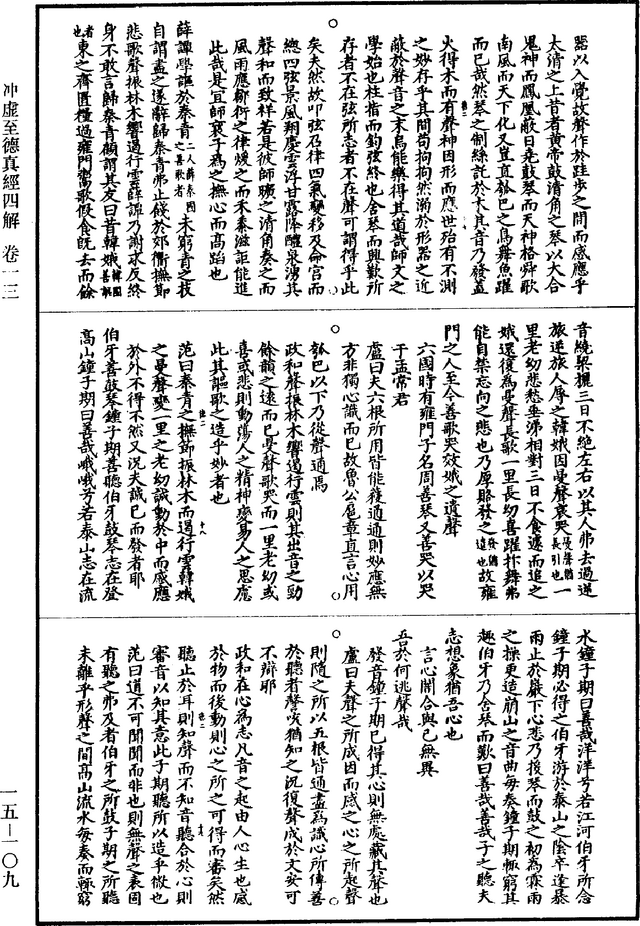 噐以入覺故聲作於跬步之間而感應乎
太清之上昔者黄帝鼓清角之琴以大合
鬼神而鳳凰蔽日堯鼓琴而天神格舜歌
南風而天下化又豈直瓠巴之鳥舞魚躍
而已哉然琴之制絲託於木其音乃發蓋
火得木而有聲神因形而應世殆有不測
之妙存乎其間苟拘拘然溺於形噐之近
蔽於聲音之末烏能樂得其道哉師文之
學始也柱指而鈎弦終也舍琴而興歎所
存者不在弦所志者不在聲可謂得乎此
矣夫然故叩弦及律四氣變移及命宫而
總四弦景風翔慶雲浮甘露降醴泉湧其
聲和而致祥若是彼師曠之清角奏之而
風雨應鄒衍之律煖之而禾黍滋詎能進
此哉是宜師襄子爲之撫心而高蹈也
薛譚學謳於秦青二人薛秦國之善歌者未窮青之技
自謂盡之遂辭歸秦青弗止餞於郊衢撫節
悲歌聲振林木響遏行雲薛譚乃謝求反終
身不敢言歸秦青顧謂其友曰昔韓娥韓國善歌者也
東之齊匱糧過雍門鬻歌假食既去而餘
音繞梁欐三日不絕左右以其人弗去過逆
旅逆旅人辱之韓娥因曼聲哀哭曼聲猶長引也一
里老幼悲愁垂涕相對三日不食遽而追之
娥還復爲曼聲長歌一里長幼喜躍抃舞弗
能自禁忘向之悲也乃厚賂發之發猶遣也故雍
門之人至今善歌哭效娥之遺聲
六國時有雍門子名周善琴又善哭以哭
干孟常君
盧曰夫六根所用皆能獲通通則妙應無
方非獨心識而已故魯公扈章直言心用
瓠巴以下乃從聲通焉
政和聲振林木響遏行雲則其出音之勁
餘韻之遠而已曼聲歌哭而一里老幼或
喜或悲則動蕩人之精神變易人之思慮
此其謳歌之造乎妙者也
范曰秦青之撫節振林木而遏行雲韓娥
之曼聲變一里之老幼誠動於中而感應
於外不得不然又況夫誠已而發者耶
伯牙善鼓琴鍾子期善聽伯牙鼓琴志在登
高山鐘子期曰善哉峨峨兮若泰山志在流
水鐘子期曰善哉洋洋兮若江河伯牙所念
鐘子期必得之伯牙游於泰山之陰卒逢暴
雨止於巖下心悲乃援琴而鼓之初爲霖雨
之操更造崩山之音曲每奏鐘子期輒窮其
趣伯牙乃舍琴而歎曰善哉善哉子之聽夫
志想象猶吾心也
言心闇合與已無異
吾於何逃聲哉
發音鐘子期已得其心則無處藏其聲也
盧曰夫聲之所成因而感之心之所起聲
則隨之所以五根皆通盡爲識心所傳善
於聽者聲咳猶知之況復聲成於文安可
不辯耶
政和在心為志凡音之起由人心生也感
於物而後動則心之所之可得而審矣然
聽止於耳則知聲而不知音聽合於心則
審音以知其意此子期聽所以造乎微也
范曰道不可聞聞而非也則無聲之表固
有聽之弗及者伯牙之所鼓子期之所聽
未離乎形聲之間高山流水每奏而輒窮
冲虛至德真經四解 卷一三
一五—一〇九